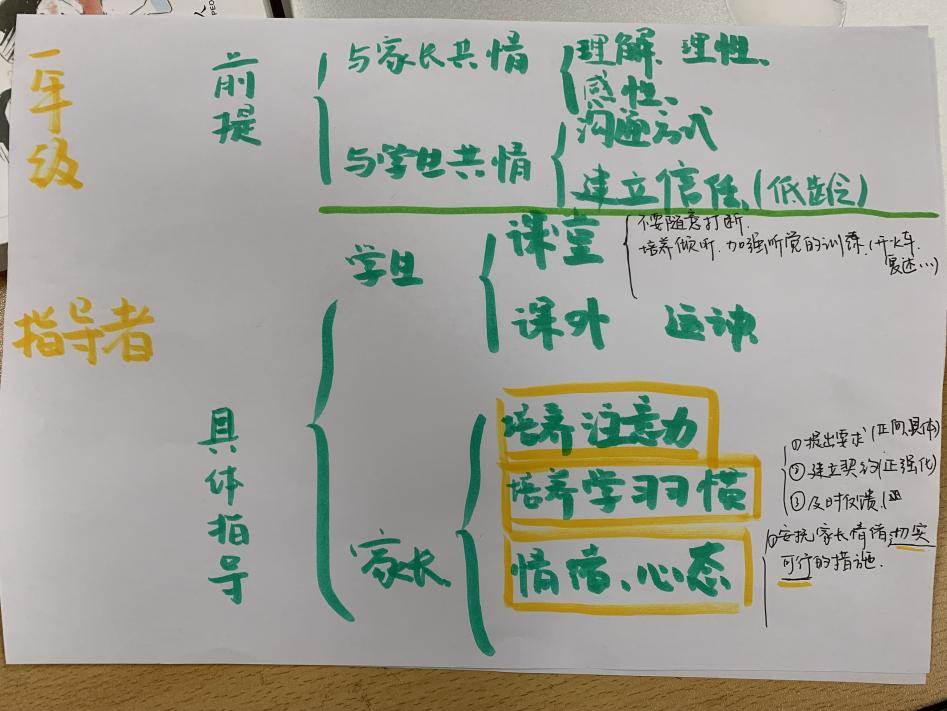 一年级
指导者
前提
与家长共情
理解、理性、
感性、
与学生共情
沟通方式
建立信任（低龄）
具体指导
学生
课堂
不要随意打断.
培养倾听.加强听觉的训练.(开火车.
复述...)
课外 运动
家长
培养注意力
培养学习习惯
①提出要求(正向,具体)
②建立契约(正强化)
③及时反馈.
情绪、心态
①安抚家长情绪,切实
可行的措施.